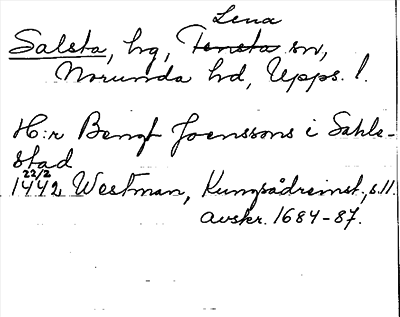 Lena
Salsta, hg, Tensta sn,
Norunda hd, Upps. l.
H:r Bengt Joenssons i Sahls-
stad
22/2
1442 Westman, Kungsådreinst., s. 11.
avskr. 1684-87.